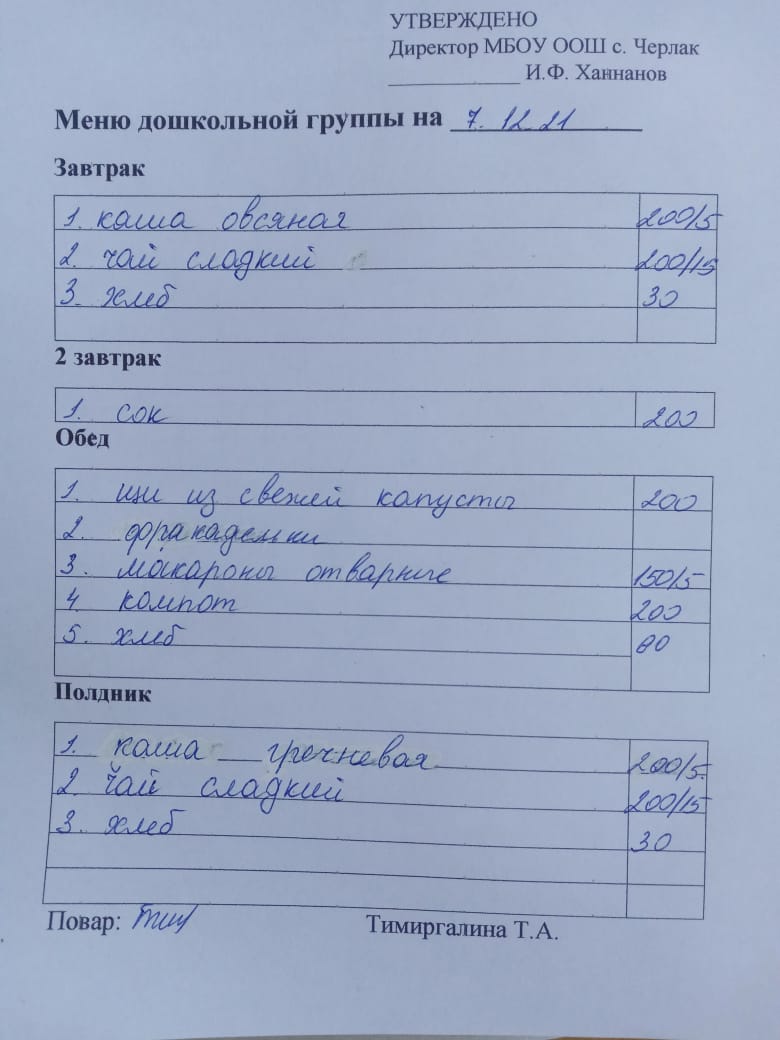 УТВЕРЖДЕНО
Директор МБОУ ООШ с. Черлак
____________ И.Ф. Ханнанов
Меню дошкольной группы на 7.12.21
Завтрак
1. каша овсяная 200/5
2. чай сладкий 200/15
3. хлеб 30
2 завтрак
1. сок 200
Обед
1. щи из свежей капусты 200
2. фрикадельки
3. макароны отварные 150/5
4. компот 200
5. хлеб
Полдник
1. каша гречневая 200/5.
2. чай сладкий 200/15
3. хлеб 30
Повар: Тимиргалина Т.А.